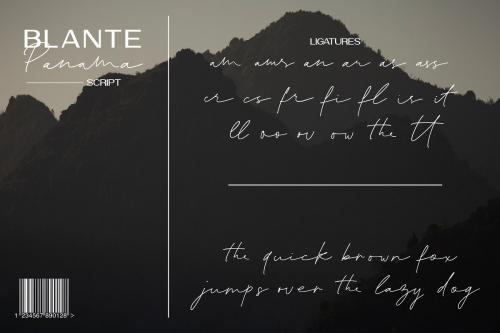 BLANTE
Panama
SCRIPT
LIGATURES
am aws an ar as ass
cr cs fr fi fl is it
ll oo ov ow the tt
the quick brown fox
jumps over the lazy dog
1 234567 890128 >